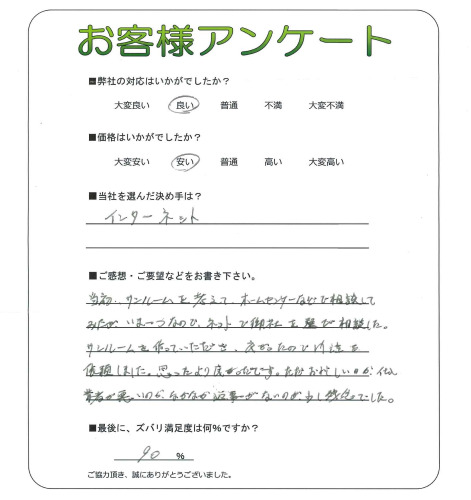 お客様アンケート
■弊社の対応はいかがでしたか？
大変良い 良い 普通 不満 大変不満
■価格はいかがでしたか？
大変安い 安い 普通 高い 大変高い
■当社を選んだ決め手は？
インターネット
■ご感想・ご要望などをお書き下さい。
当初、サンルームを考えて、ホームセンターなどで相談して
みたがいま一つなので、ネットで御社を選び相談した。
サンルームを作っていただき、良かったので
依頼しました。思ったより良かったです。ただおしいのが、
業者が悪いのか、なかなか返事がないのが少し残念でした。
■最後に、ズバリ満足度は何％ですか？
90 %
ご協力頂き、誠にありがとうございました。